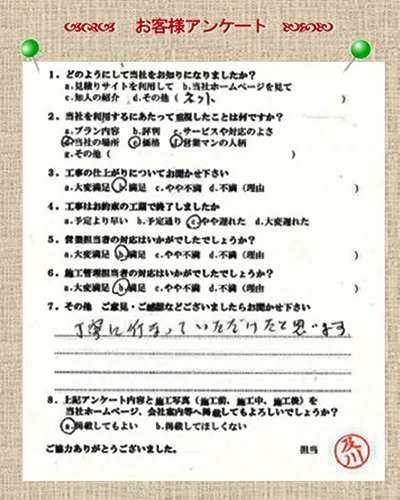 お客様アンケート
1．どのようにして当社をお知りになりましたか？
a.見積りサイトを利用して b.当社ホームページを見て
c.知人の紹介 d.その他（ ネット ）
2．当社を利用するにあたって重視したことは何ですか？
a.プラン内容 b.評判 c.サービスや対応のよさ
d.当社の場所 e.価格 f.営業マンの人柄
g.その他（ ）
3．工事の仕上がりについてお聞かせ下さい
a.大変満足 b.満足 c.やや不満 d.不満（理由 ）
4．工事はお約束の工期で終了しましたか
a.予定より早い b.予定通り c.やや遅れた d.大変遅れた
5．営業担当者の対応はいかがでしたでしょうか？
a.大変満足 b.満足 c.やや不満 d.不満（理由 ）
6．施工管理担当者の対応はいかがでしたでしょうか？
a.大変満足 b.満足 c.やや不満 d.不満（理由 ）
7．その他 ご意見・ご感想などございましたらお聞かせ下さい
丁寧に行なっていただけたと思います
8．上記アンケート内容と施工写真（施工前、施工中、施工後）を
当社ホームページ、会社案内等へ掲載してもよろしいでしょうか？
a.掲載してもよい b.掲載してほしくない
ご協力ありがとうございました。 担当 及川